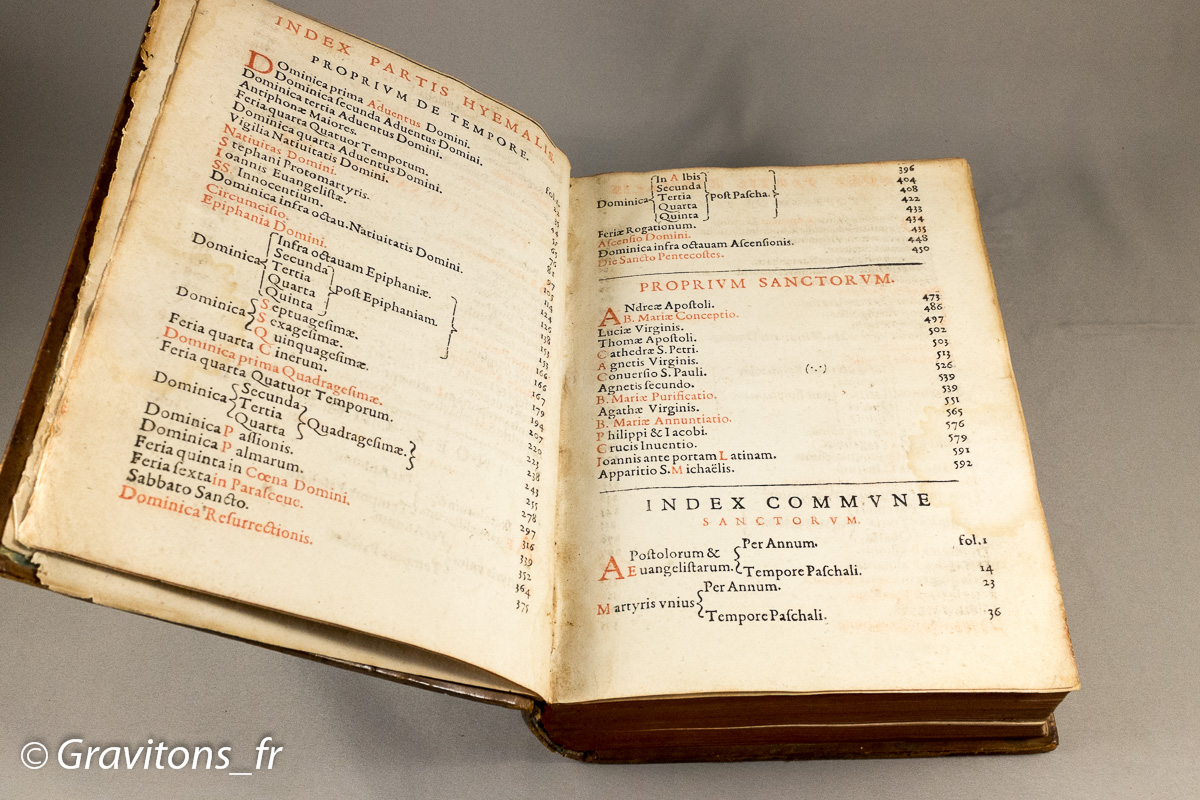 INDEX PARTIS HYEMALIS.
PROPRIVM DE TEMPORE.
DOminica prima Aduentus Domini. fol.1
Dominica secunda Aduentus Domini.
Dominica tertia Aduentus Domini.
Antiphonæ Maiores.
Feria quarta Quatuor Temporum.
Dominica quarta Aduentus Domini.
Vigilia Natiuitatis Domini.
Natiuitas Domini.
Stephani Protomartyris.
Ioannis Euangelistæ.
SS. Innocentium.
Dominica infra octau. Natiuitatis Domini.
Circumcisio.
Epiphania Domini.
Dominica
Infra octauam Epiphaniæ.
Secunda
Tertia
Quarta
Quinta
post Epiphaniam.
Dominica
Septuagesimæ.
Sexagesimæ.
Quinquagesimæ.
Feria quarta Cinerum.
Dominica prima Quadragesimæ.
Feria quarta Quatuor Temporum.
Dominica
Secunda
Tertia
Quarta
Quadragesimæ.
Dominica Passionis.
Dominica Palmarum.
Feria quinta in Cœna Domini.
Feria sexta in Parasceue.
Sabbato Sancto.
Dominica Resurrectionis.
63
76
81
97
105
114
124
126
138
153
153
166
166
167
179
194
207
220
223
238
243
255
278
297
316
339
352
364
375
Dominica
In Albis
Secunda
Tertia
Quarta
Quinta
post Pascha.
396
404
408
422
433
Feriæ Rogationum. 434
Ascensio Domini. 435
Dominica infra octauam Ascensionis. 448
Die Sancto Pentecostes. 450
PROPRIVM SANCTORVM.
ANdreæ Apostoli. 473
B. Mariæ Conceptio. 486
Luciæ Virginis. 497
Thomæ Apostoli. 502
Cathedræ S. Petri. 503
Agnetis Virginis. 513
Conuersio S. Pauli. 526
Agnetis secundo. 539
B. Mariæ Purificatio. 539
Agathæ Virginis. 551
B. Mariæ Annuntiatio. 565
Philippi & Iacobi. 576
Crucis Inuentio. 579
Ioannis ante portam Latinam. 591
Apparitio S. Michaëlis. 592
INDEX COMMVNE
SANCTORVM.
APostolorum &
Euangelistarum.
Per Annum. fol.1
Tempore Paschali. 14
Martyris vnius
Per Annum. 23
Tempore Paschali. 36
© Gravitons_fr